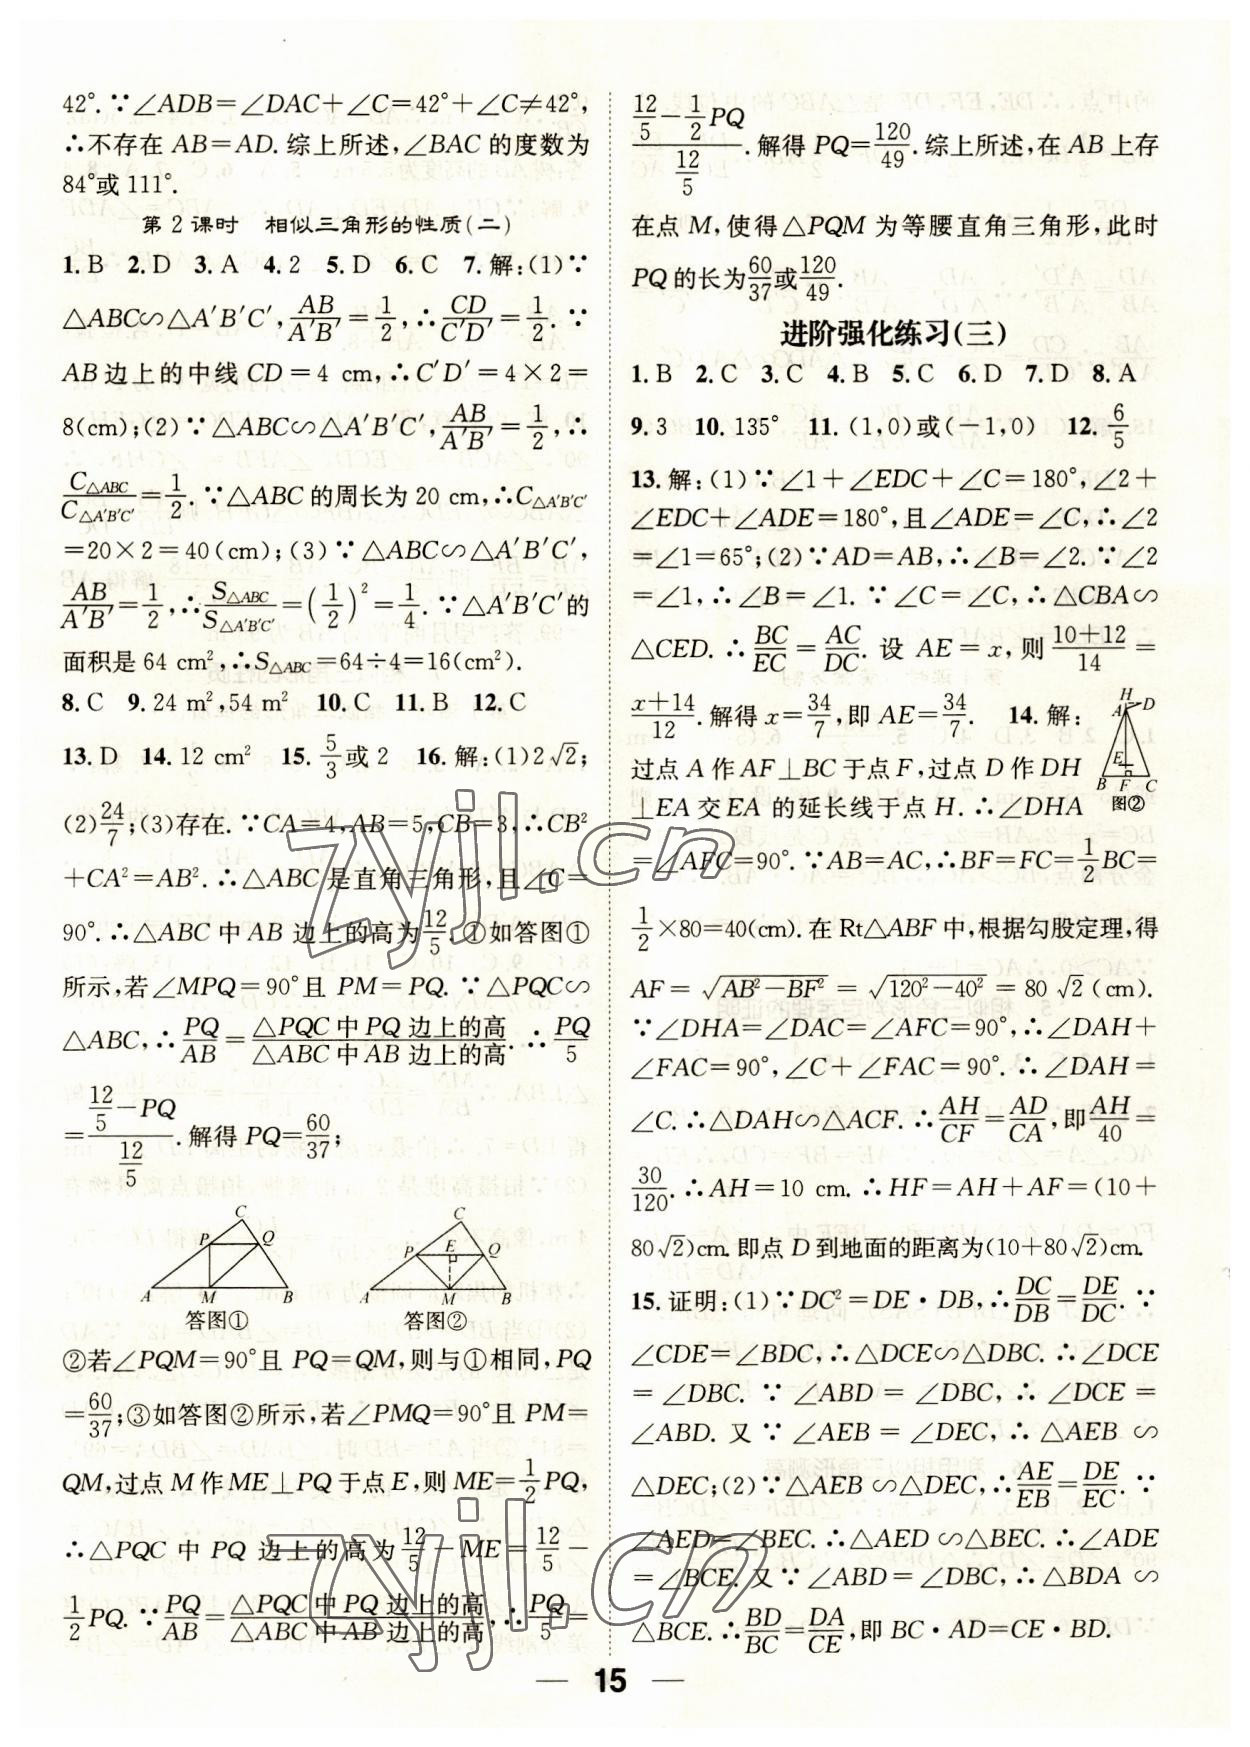 42°.∵∠ADB=∠DAC+∠C=42°+∠C≠42°,
∴不存在 AB=AD. 综上所述,∠BAC 的度数为
84°或 111°.
第 2 课时　相似三角形的性质(二)
1. B　2. D　3. A　4. 2　5. D　6. C　7. 解:(1)∵
△ABC∽△A′B′C′, AB/A′B′=1/2,∴CD/C′D′=1/2. ∵
AB 边上的中线 CD=4 cm,∴C′D′=4×2=
8(cm);(2)∵△ABC∽△A′B′C′, AB/A′B′=1/2,∴
C△ABC/C△A′B′C′=1/2. ∵△ABC 的周长为 20 cm,∴C△A′B′C′
=20×2=40(cm);(3)∵△ABC∽△A′B′C′,
AB/A′B′=1/2,∴S△ABC/S△A′B′C′=(1/2)²=1/4. ∵△A′B′C′的
面积是 64 cm²,∴S△ABC=64÷4=16(cm²).
8. C　9. 24 m²,54 m²　10. C　11. B　12. C
13. D　14. 12 cm²　15. 5/3或 2　16. 解:(1)2√2;
(2)24/7;(3)存在.∵CA=4,AB=5,CB=3,∴CB²
+CA²=AB².∴△ABC 是直角三角形,且∠C=
90°.∴△ABC 中 AB 边上的高为12/5.①如答图①
所示,若∠MPQ=90°且 PM=PQ. ∵△PQC∽
△ABC,∴PQ/AB=△PQC 中 PQ 边上的高/△ABC 中 AB 边上的高.∴PQ/5
=(12/5-PQ)/(12/5).解得 PQ=60/37;
C P Q A M B
答图①
C P E Q A M B
答图②
②若∠PQM=90°且 PQ=QM,则与①相同,PQ
=60/37;③如答图②所示,若∠PMQ=90°且 PM=
QM,过点 M 作 ME⊥PQ 于点 E,则 ME=1/2PQ,
∴△PQC 中 PQ 边上的高为12/5-ME=12/5-
1/2PQ. ∵PQ/AB=△PQC 中 PQ 边上的高/△ABC 中 AB 边上的高,∴PQ/5=
(12/5-1/2PQ)/(12/5).解得 PQ=120/49.综上所述,在 AB 上存
在点 M,使得△PQM 为等腰直角三角形,此时
PQ 的长为60/37或120/49.
进阶强化练习(三)
1. B　2. C　3. C　4. B　5. C　6. D　7. D　8. A
9. 3　10. 135°　11. (1,0)或(-1,0)　12. 6/5
13. 解:(1)∵∠1+∠EDC+∠C=180°,∠2+
∠EDC+∠ADE=180°,且∠ADE=∠C,∴∠2
=∠1=65°;(2)∵AD=AB,∴∠B=∠2.∵∠2
=∠1,∴∠B=∠1.∵∠C=∠C,∴△CBA∽
△CED. ∴BC/EC=AC/DC. 设 AE=x,则(10+12)/14=
(x+14)/12.解得 x=34/7,即 AE=34/7.　14. 解:
过点 A 作 AF⊥BC 于点 F,过点 D 作 DH
⊥EA 交 EA 的延长线于点 H.∴∠DHA
H A D E B F C
图②
=∠AFC=90°.∵AB=AC,∴BF=FC=1/2BC=
1/2×80=40(cm).在 Rt△ABF 中,根据勾股定理,得
AF=√(AB²-BF²)=√(120²-40²)=80√2(cm).
∵∠DHA=∠DAC=∠AFC=90°,∴∠DAH+
∠FAC=90°,∠C+∠FAC=90°.∴∠DAH=
∠C.∴△DAH∽△ACF.∴AH/CF=AD/CA,即AH/40=
30/120.∴AH=10 cm.∴HF=AH+AF=(10+
80√2)cm.即点 D 到地面的距离为(10+80√2)cm.
15. 证明:(1)∵DC²=DE·DB,∴DC/DB=DE/DC. ∵
∠CDE=∠BDC,∴△DCE∽△DBC.∴∠DCE
=∠DBC. ∵∠ABD=∠DBC,∴∠DCE=
∠ABD. 又∵∠AEB=∠DEC,∴△AEB∽
△DEC;(2)∵△AEB∽△DEC,∴AE/EB=DE/EC. ∵
∠AED=∠BEC.∴△AED∽△BEC.∴∠ADE
=∠BCE. 又∵∠ABD=∠DBC,∴△BDA∽
△BCE.∴BD/BC=DA/CE,即 BC·AD=CE·BD.
zyjl.cn
zyjl.cn
15